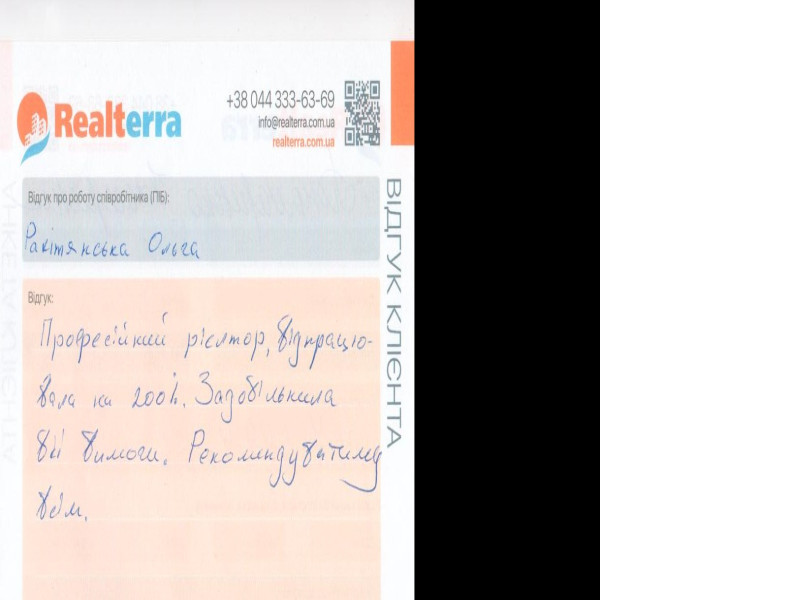 Realterra
+38 044 333-63-69
info@realterra.com.ua
realterra.com.ua
ВІДГУК КЛІЄНТА
Відгук про роботу співробітника (ПІБ):
Ракітянська Ольга
Відгук:
Професійний рієлтор, відпрацю-
вала на 200%. Задовільнила
всі вимоги. Рекомендуватиму
всім.